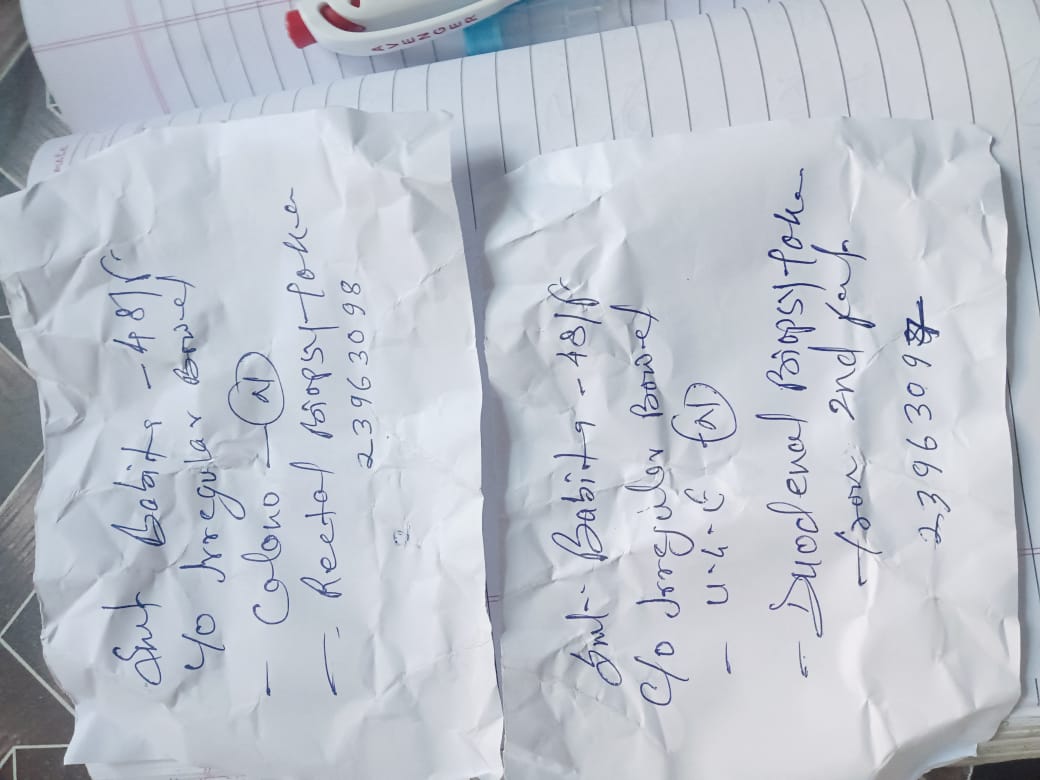 AVENGER
Smt Babita - 48/F
c/o Irregular Bowel
- Colono - (N)
- Rectal Biopsy Taken
23963098
Smt. Babita - 48/F
c/o Irregular Bowel
- U.G.E (N)
- Duodenal Biopsy Taken
from 2nd part
2396309